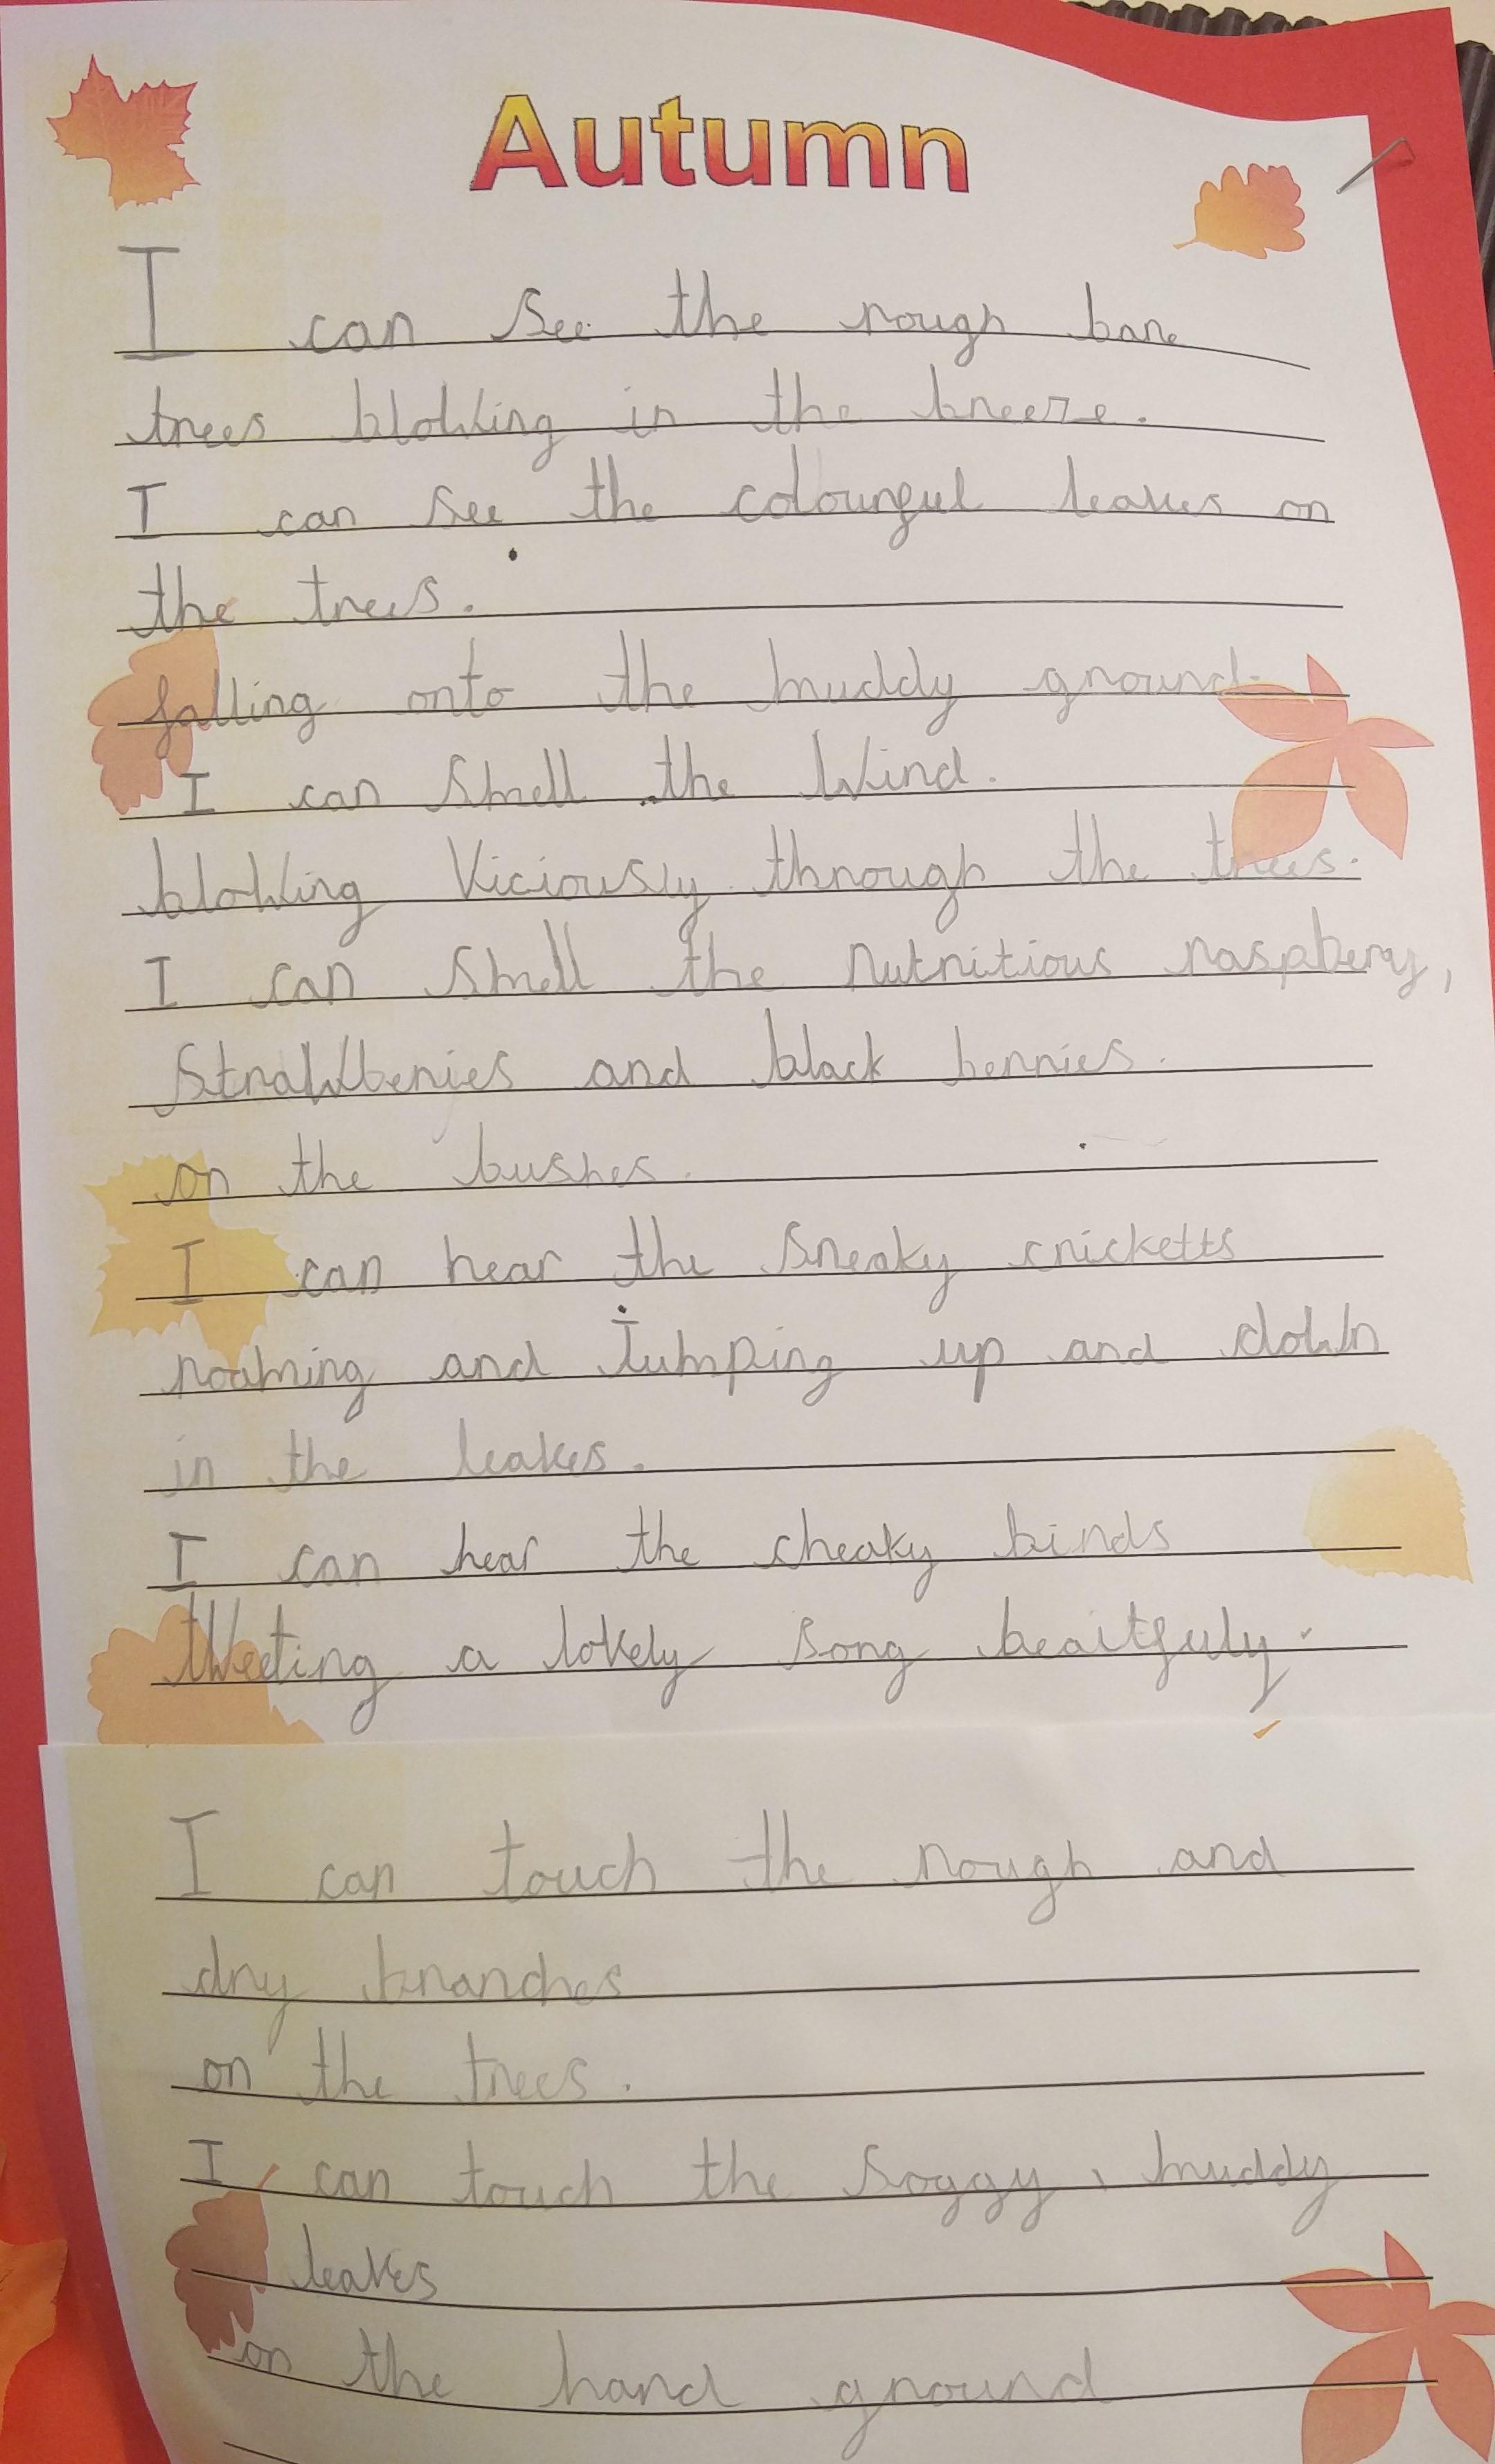 Autumn
I can see the rough bare
trees blowing in the breeze.
I can see the colourful leaves on
the trees.
falling onto the muddy ground.
I can smell the wind.
blowing Viciously through the trees.
I can smell the nutritious raspbery,
strawberies and black berries.
on the bushes.
I can hear the sneaky cricketts
roaming and Jumping up and down
in the leaves.
I can hear the cheaky birds
tweeting a lovely song beaitfuly.
I can touch the rough and
dry branches
on the trees.
I can touch the soggy, muddy
leaves
on the hard ground